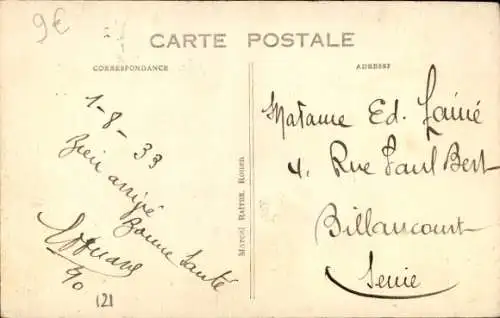 9€
CARTE POSTALE
CORRESPONDANCE
ADRESSE
1-8-33
Bien arrivé
Bonne Santé
90
(21
Marcel Rouen
Madame Ed.
4, Rue Paul Bert
Billancourt
Seine